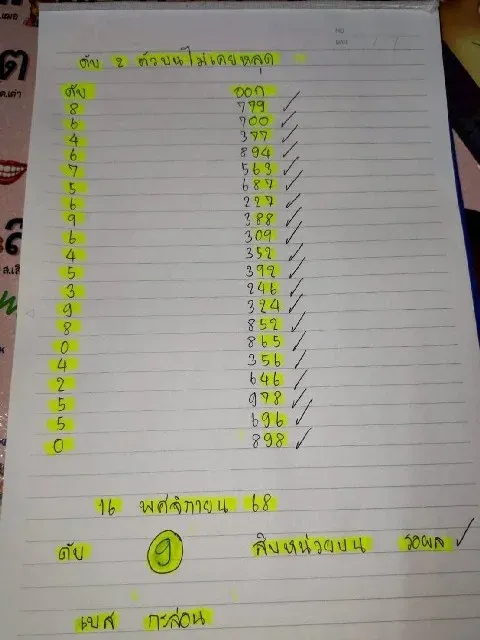 ดับ 2 ตัวบนไม่เคยหลุด
ดับ ออก
8 779 ✓
6 700 ✓
4 377 ✓
6 894 ✓
7 563 ✓
5 687 ✓
6 227 ✓
9 388 ✓
6 309 ✓
4 352 ✓
5 392 ✓
3 246 ✓
9 324 ✓
8 852 ✓
0 865 ✓
4 356 ✓
2 646 ✓
5 978 ✓
5 696 ✓
0 898 ✓
16 พฤศจิกายน 68
ดับ 9 สิบหน่วยบน รอผล ✓
เบส กะล่อน